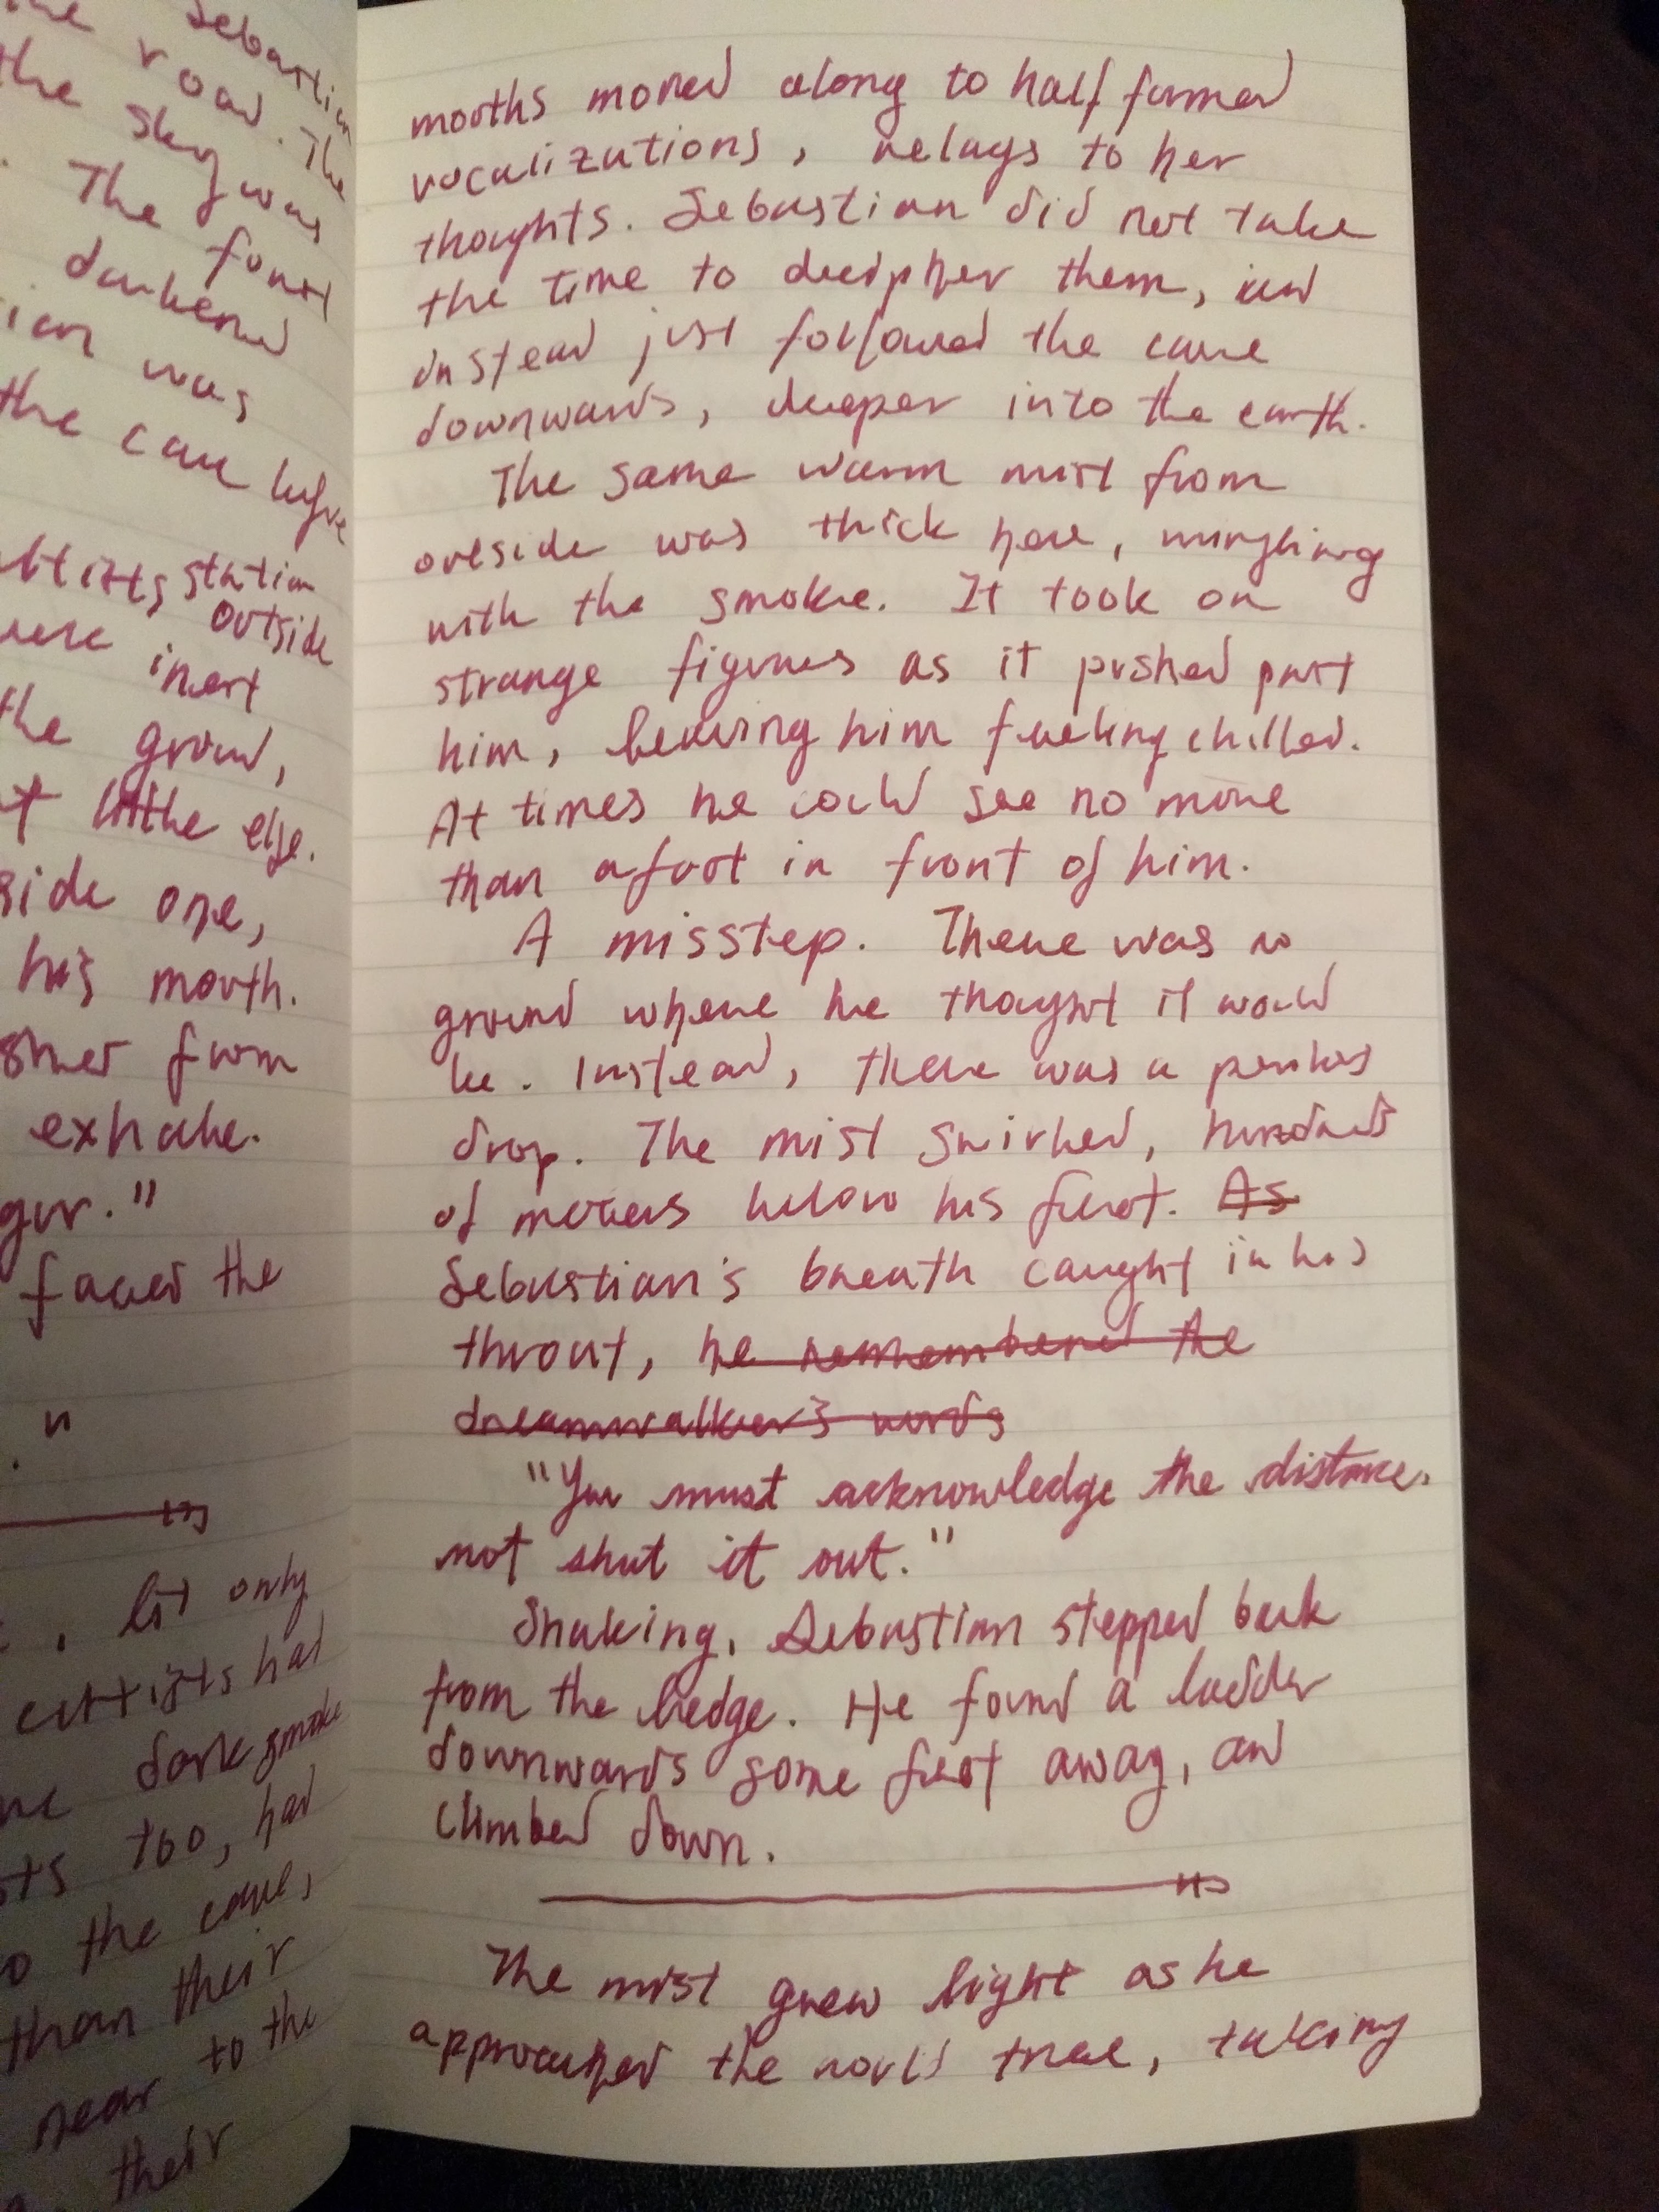 Sebastian
the road. The
the sky was
The forest
darkened
ian was
the cave before
ltists station
outside
were inert
the ground,
t little else.
side one,
his mouth.
from
exhale.
faced the
lit only
cultists had
dark smoke
ts too, had
o the cave,
than their
near to the
their
mouths moved along to half formed
vocalizations, relays to her
thoughts. Sebastian did not take
the time to decipher them, and
instead just followed the cave
downwards, deeper into the earth.
The same warm mist from
outside was thick here, mingling
with the smoke. It took on
strange figures as it pushed past
him, leaving him feeling chilled.
At times he could see no more
than a foot in front of him.
A misstep. There was no
ground where he thought it would
be. Instead, there was a
drop. The mist swirled, hundreds
of meters below his feet. As
Sebastian's breath caught in his
throat, he remembered the
dreamwalker's words
"You must acknowledge the distance,
not shut it out."
Shaking, Sebastian stepped back
from the ledge. He found a ladder
downwards some feet away, and
climbed down.
The mist grew light as he
approached the world tree, taking